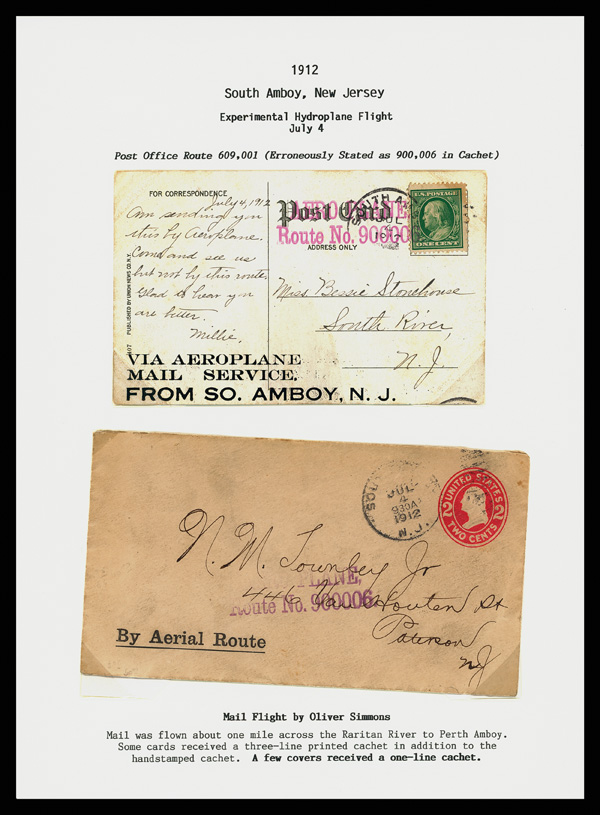 1912
South Amboy, New Jersey
Experimental Hydroplane Flight
July 4
Post Office Route 609,001 (Erroneously Stated as 900,006 in Cachet)
FOR CORRESPONDENCE
July 4, 1912
Am sending you
this by Aeroplane.
Come and see us
but not by this route.
Glad to hear you
are better.
Millie.
PUBLISHED BY UNION NEWS CO. N.Y.
Post Card
Route No. 90000
ADDRESS ONLY
SOUTH A
JUL
U.S. POSTAGE
ONE CENT
Miss Bessie Stonehouse
South River,
N. J.
VIA AEROPLANE
MAIL SERVICE.
FROM SO. AMBOY, N. J.
JUL
4
930A
1912
N.J.
UNITED STATES
2 2
TWO CENTS
N. M. Townley Jr
PLANE,
446 Van Houten St
Route No. 900006
Paterson
NJ
By Aerial Route
Mail Flight by Oliver Simmons
Mail was flown about one mile across the Raritan River to Perth Amboy.
Some cards received a three-line printed cachet in addition to the
handstamped cachet. A few covers received a one-line cachet.